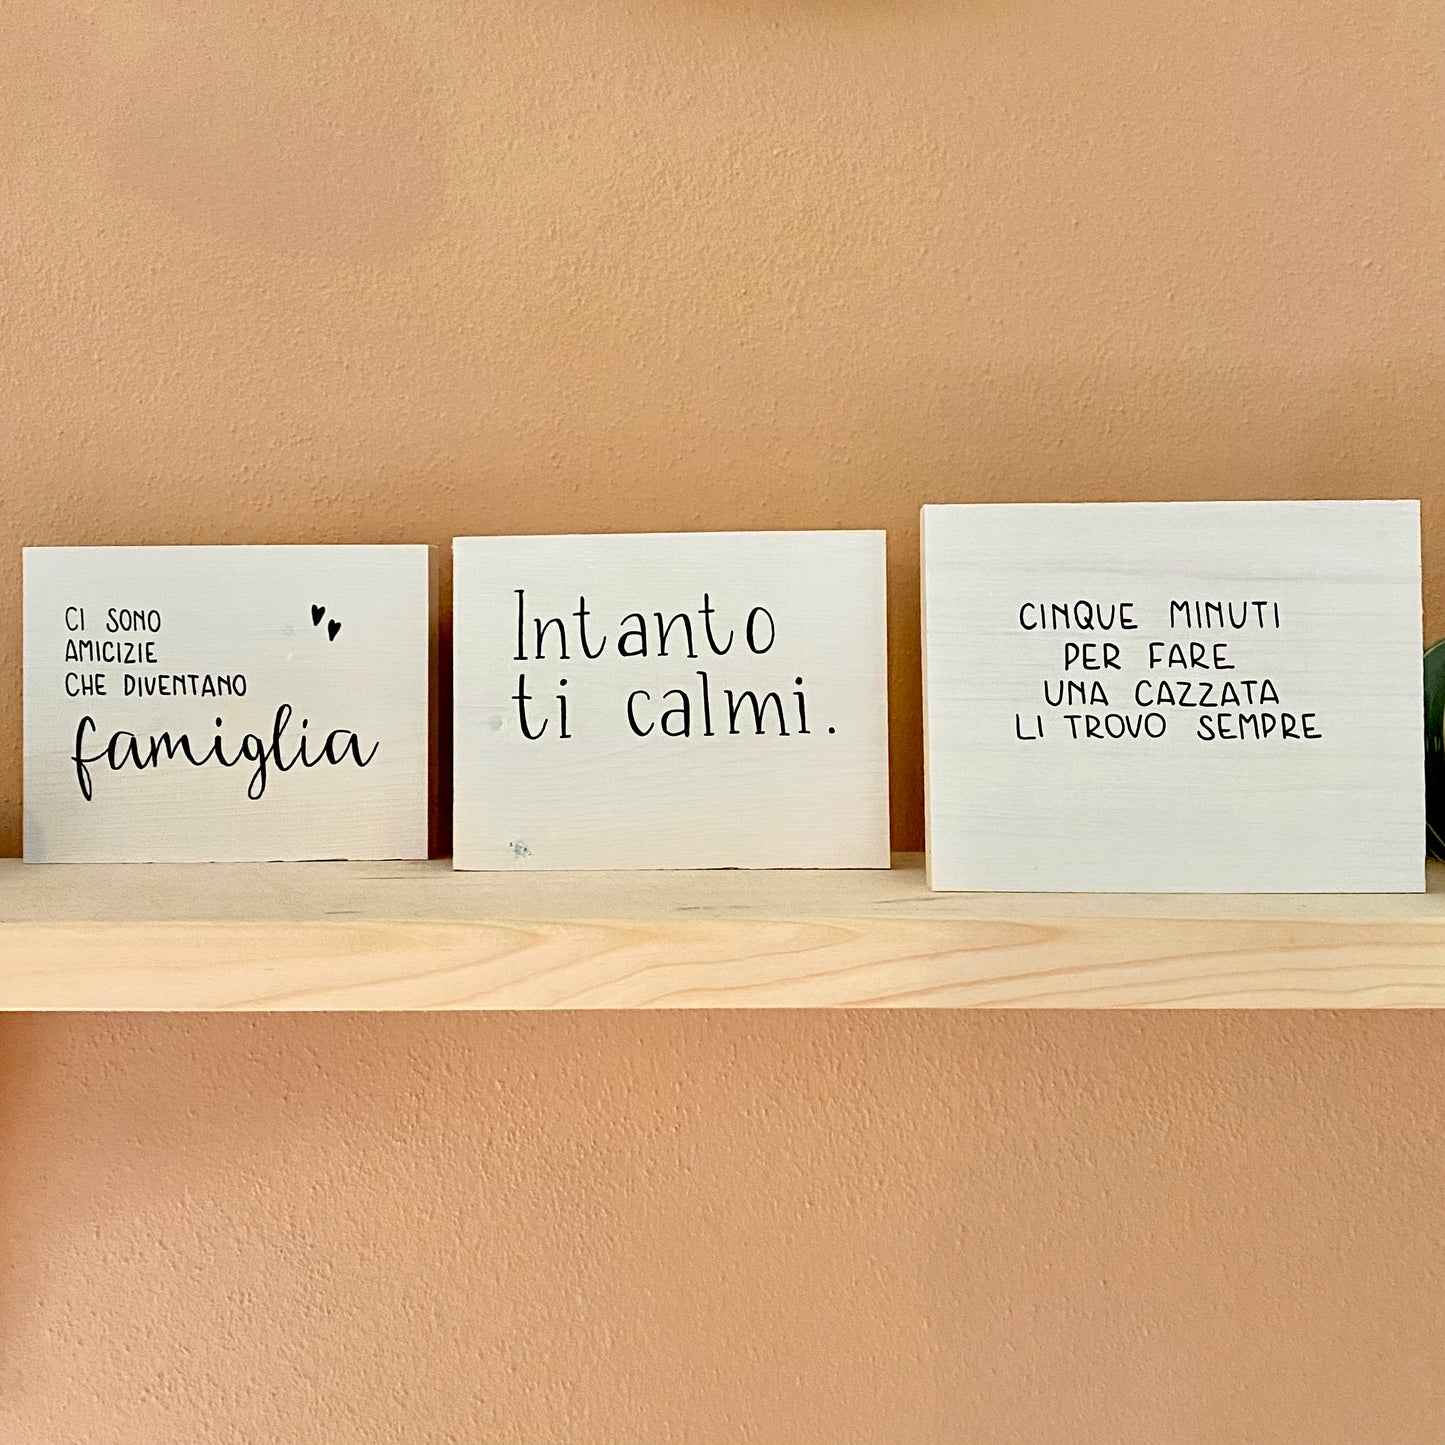 CI SONO
AMICIZIE
CHE DIVENTANO
famiglia
Intanto
ti calmi.
CINQUE MINUTI
PER FARE
UNA CAZZATA
LI TROVO SEMPRE